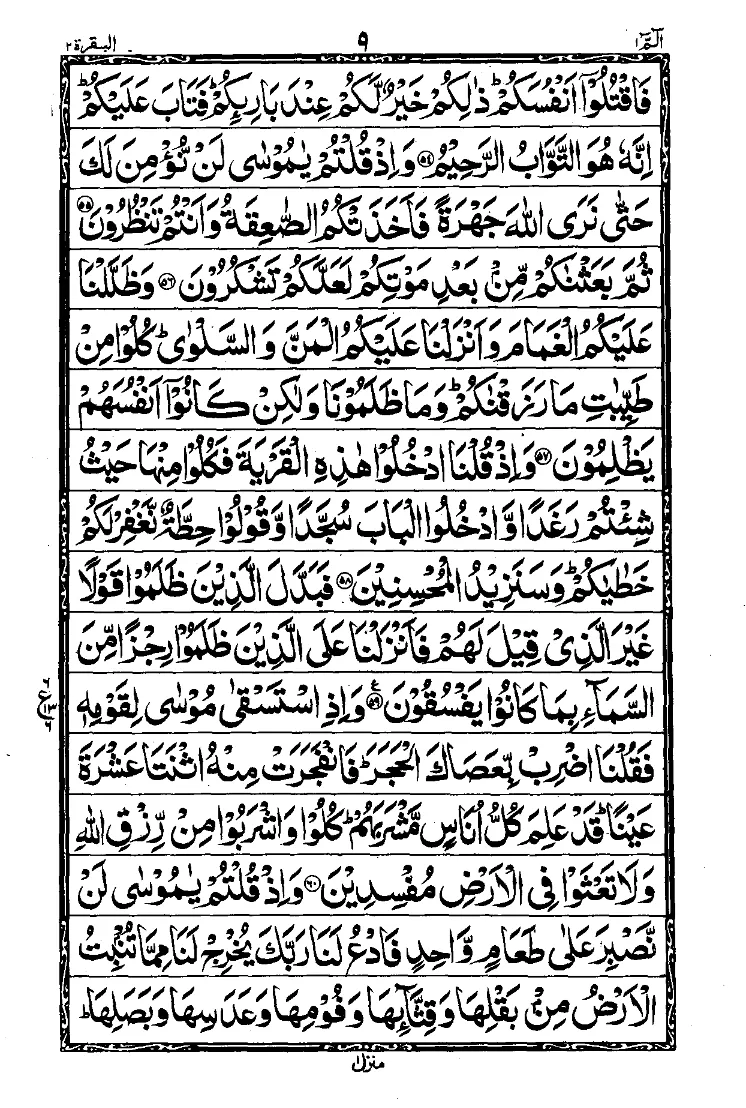 الٓمّٓ ١ ٩ البقرة ٢
فَاقْتُلُوْۤا اَنْفُسَكُمْ ؕ ذٰلِكُمْ خَيْرٌ لَّكُمْ عِنْدَ بَارِىِٕكُمْ ؕ فَتَابَ عَلَيْكُمْ ؕ
اِنَّهٗ هُوَ التَّوَّابُ الرَّحِيْمُ ۝۵۴ وَ اِذْ قُلْتُمْ يٰمُوْسٰى لَنْ نُّؤْمِنَ لَكَ
حَتّٰى نَرَى اللّٰهَ جَهْرَةً فَاَخَذَتْكُمُ الصّٰعِقَةُ وَ اَنْتُمْ تَنْظُرُوْنَ ۝۵۵
ثُمَّ بَعَثْنٰكُمْ مِّنْۢ بَعْدِ مَوْتِكُمْ لَعَلَّكُمْ تَشْكُرُوْنَ ۝۵۶ وَ ظَلَّلْنَا
عَلَيْكُمُ الْغَمَامَ وَ اَنْزَلْنَا عَلَيْكُمُ الْمَنَّ وَ السَّلْوٰى ؕ كُلُوْا مِنْ
طَيِّبٰتِ مَا رَزَقْنٰكُمْ ؕ وَ مَا ظَلَمُوْنَا وَ لٰكِنْ كَانُوْۤا اَنْفُسَهُمْ
يَظْلِمُوْنَ ۝۵۷ وَ اِذْ قُلْنَا ادْخُلُوْا هٰذِهِ الْقَرْيَةَ فَكُلُوْا مِنْهَا حَيْثُ
شِئْتُمْ رَغَدًا وَّ ادْخُلُوا الْبَابَ سُجَّدًا وَّ قُوْلُوْا حِطَّةٌ نَّغْفِرْ لَكُمْ
خَطٰيٰكُمْ ؕ وَ سَنَزِيْدُ الْمُحْسِنِيْنَ ۝۵۸ فَبَدَّلَ الَّذِيْنَ ظَلَمُوْا قَوْلًا
غَيْرَ الَّذِيْ قِيْلَ لَهُمْ فَاَنْزَلْنَا عَلَى الَّذِيْنَ ظَلَمُوْا رِجْزًا مِّنَ
السَّمَآءِ بِمَا كَانُوْا يَفْسُقُوْنَ ۝۵۹ ع وَ اِذِ اسْتَسْقٰى مُوْسٰى لِقَوْمِهٖ
٦ ع ١٣ ٦
فَقُلْنَا اضْرِبْ بِّعَصَاكَ الْحَجَرَ ؕ فَانْفَجَرَتْ مِنْهُ اثْنَتَا عَشْرَةَ
عَيْنًا ؕ قَدْ عَلِمَ كُلُّ اُنَاسٍ مَّشْرَبَهُمْ ؕ كُلُوْا وَ اشْرَبُوْا مِنْ رِّزْقِ اللّٰهِ
وَ لَا تَعْثَوْا فِى الْاَرْضِ مُفْسِدِيْنَ ۝۶۰ وَ اِذْ قُلْتُمْ يٰمُوْسٰى لَنْ
نَّصْبِرَ عَلٰى طَعَامٍ وَّاحِدٍ فَادْعُ لَنَا رَبَّكَ يُخْرِجْ لَنَا مِمَّا تُنْۢبِتُ
الْاَرْضُ مِنْۢ بَقْلِهَا وَ قِثَّآىِٕهَا وَ فُوْمِهَا وَ عَدَسِهَا وَ بَصَلِهَا ؕ
منزل ١